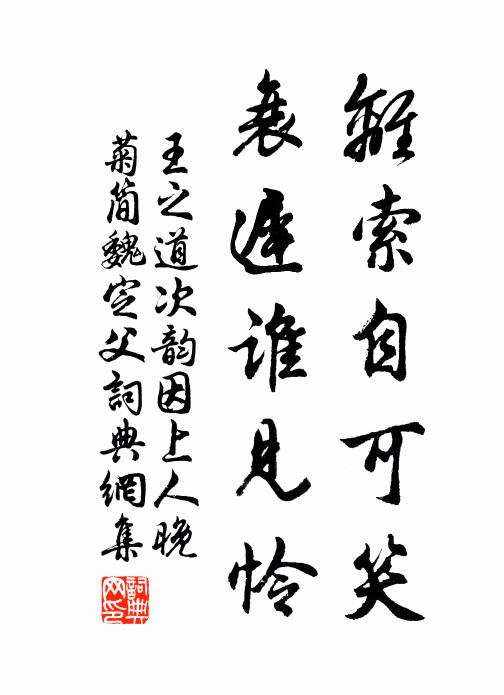 離索自可笑
衰遲誰見憐
王之道次韵因上人晚
菊簡魏定父詞典網集